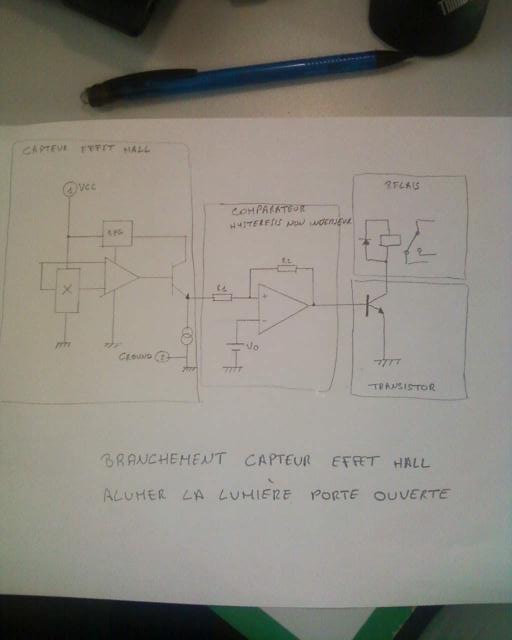 CAPTEUR EFFET HALL
VCC
REG
X
GROUND 2
COMPARATEUR
HYSTERESIS NON INVERSEUR
R1
R2
+
-
VO
RELAIS
TRANSISTOR
BRANCHEMENT CAPTEUR EFFET HALL
ALUMER LA LUMIÈRE PORTE OUVERTE